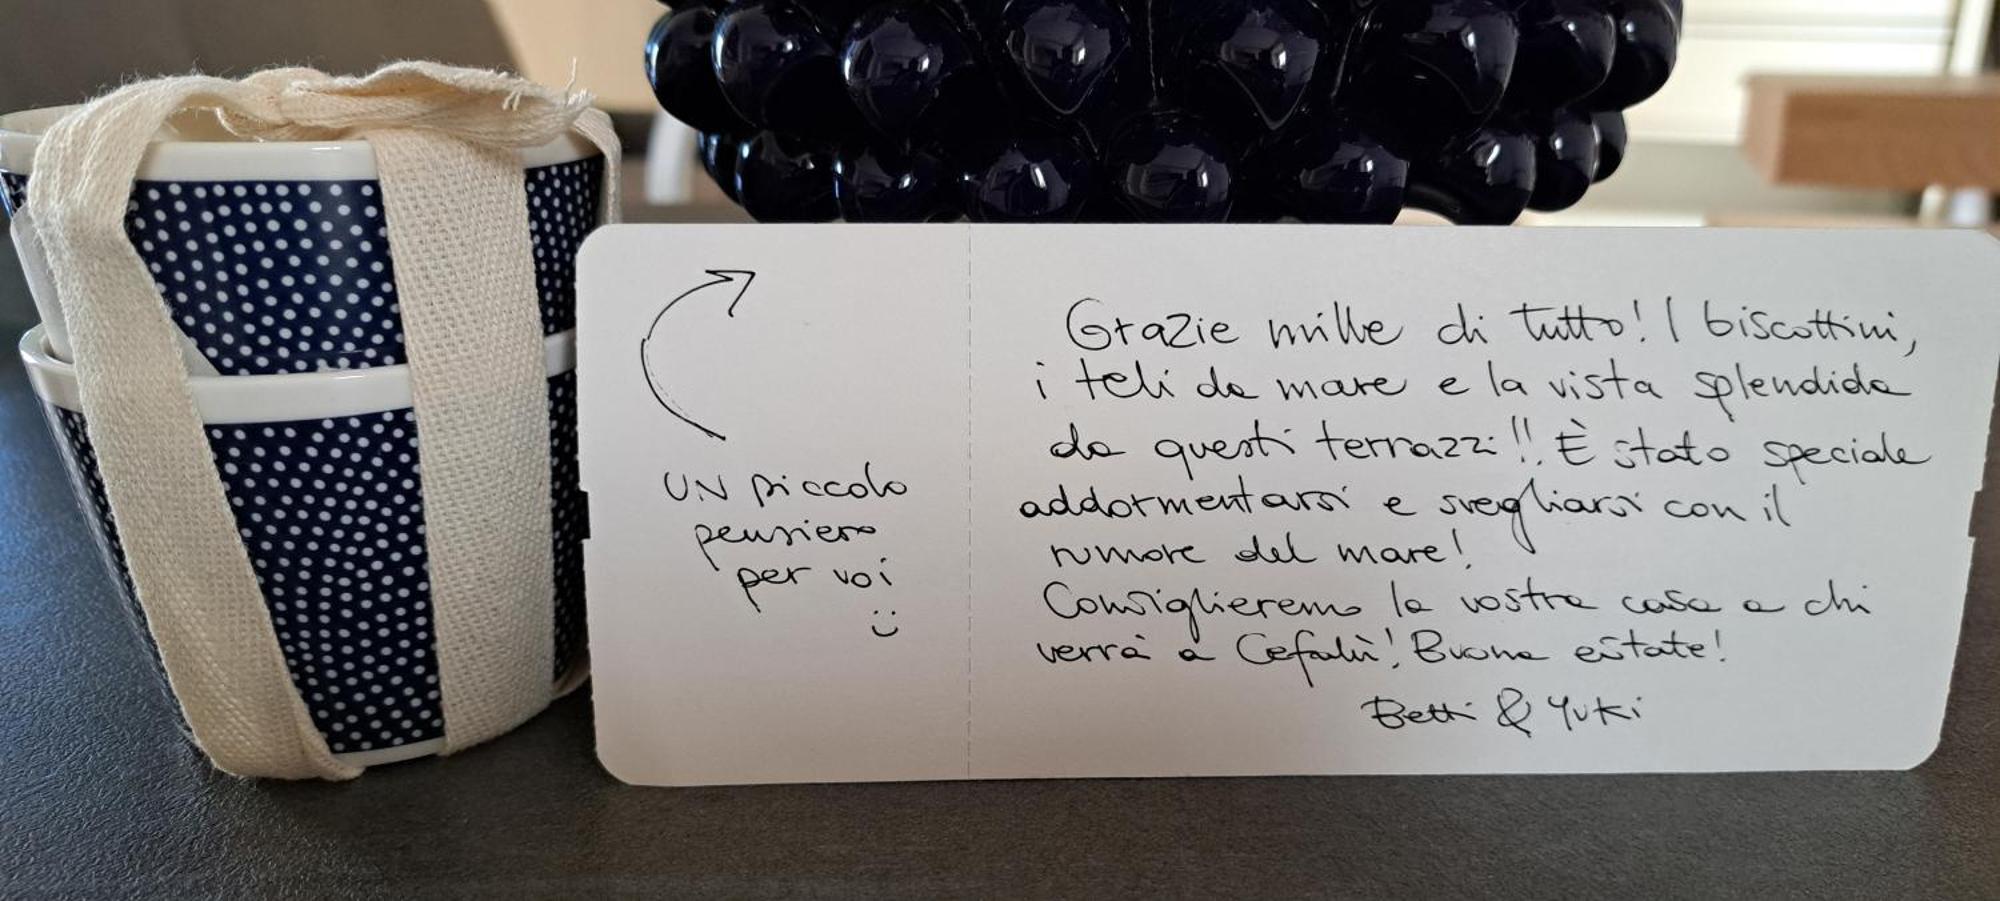 UN piccolo
pensiero
per voi
:)
Grazie mille di tutto! I biscottini,
i teli da mare e la vista splendida
da questi terrazzi!! È stato speciale
addormentarsi e svegliarsi con il
rumore del mare!
Consiglieremo la vostra casa a chi
verrà a Cefalù! Buona estate!
Betti & Yuki